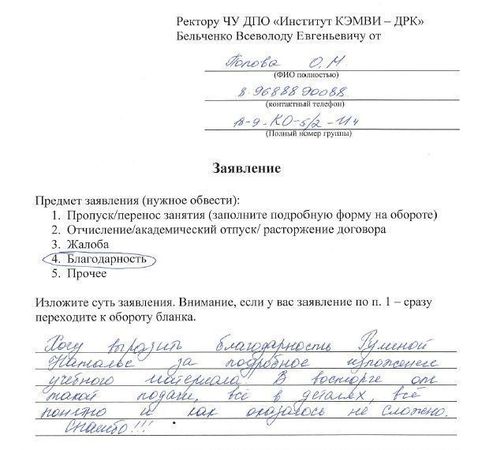 Ректору ЧУ ДПО «Институт КЭМВИ – ДРК»
Бельченко Всеволоду Евгеньевичу от
Попова О.М
(ФИО полностью)
8.9688890088
(контактный телефон)
(Полный номер группы)
Заявление
Предмет заявления (нужное обвести):
1. Пропуск/перенос занятия (заполните подробную форму на обороте)
2. Отчисление/академический отпуск/ расторжение договора
3. Жалоба
4. Благодарность
5. Прочее
Изложите суть заявления. Внимание, если у вас заявление по п. 1 – сразу
переходите к обороту бланка.
Хочу выразить благодарность Гуменой
Наталье за подробное изложение
учебного материала. В восторге от
такой подачи, всё в деталях, всё
понятно и как оказалось не сложно.
Спасибо!!!